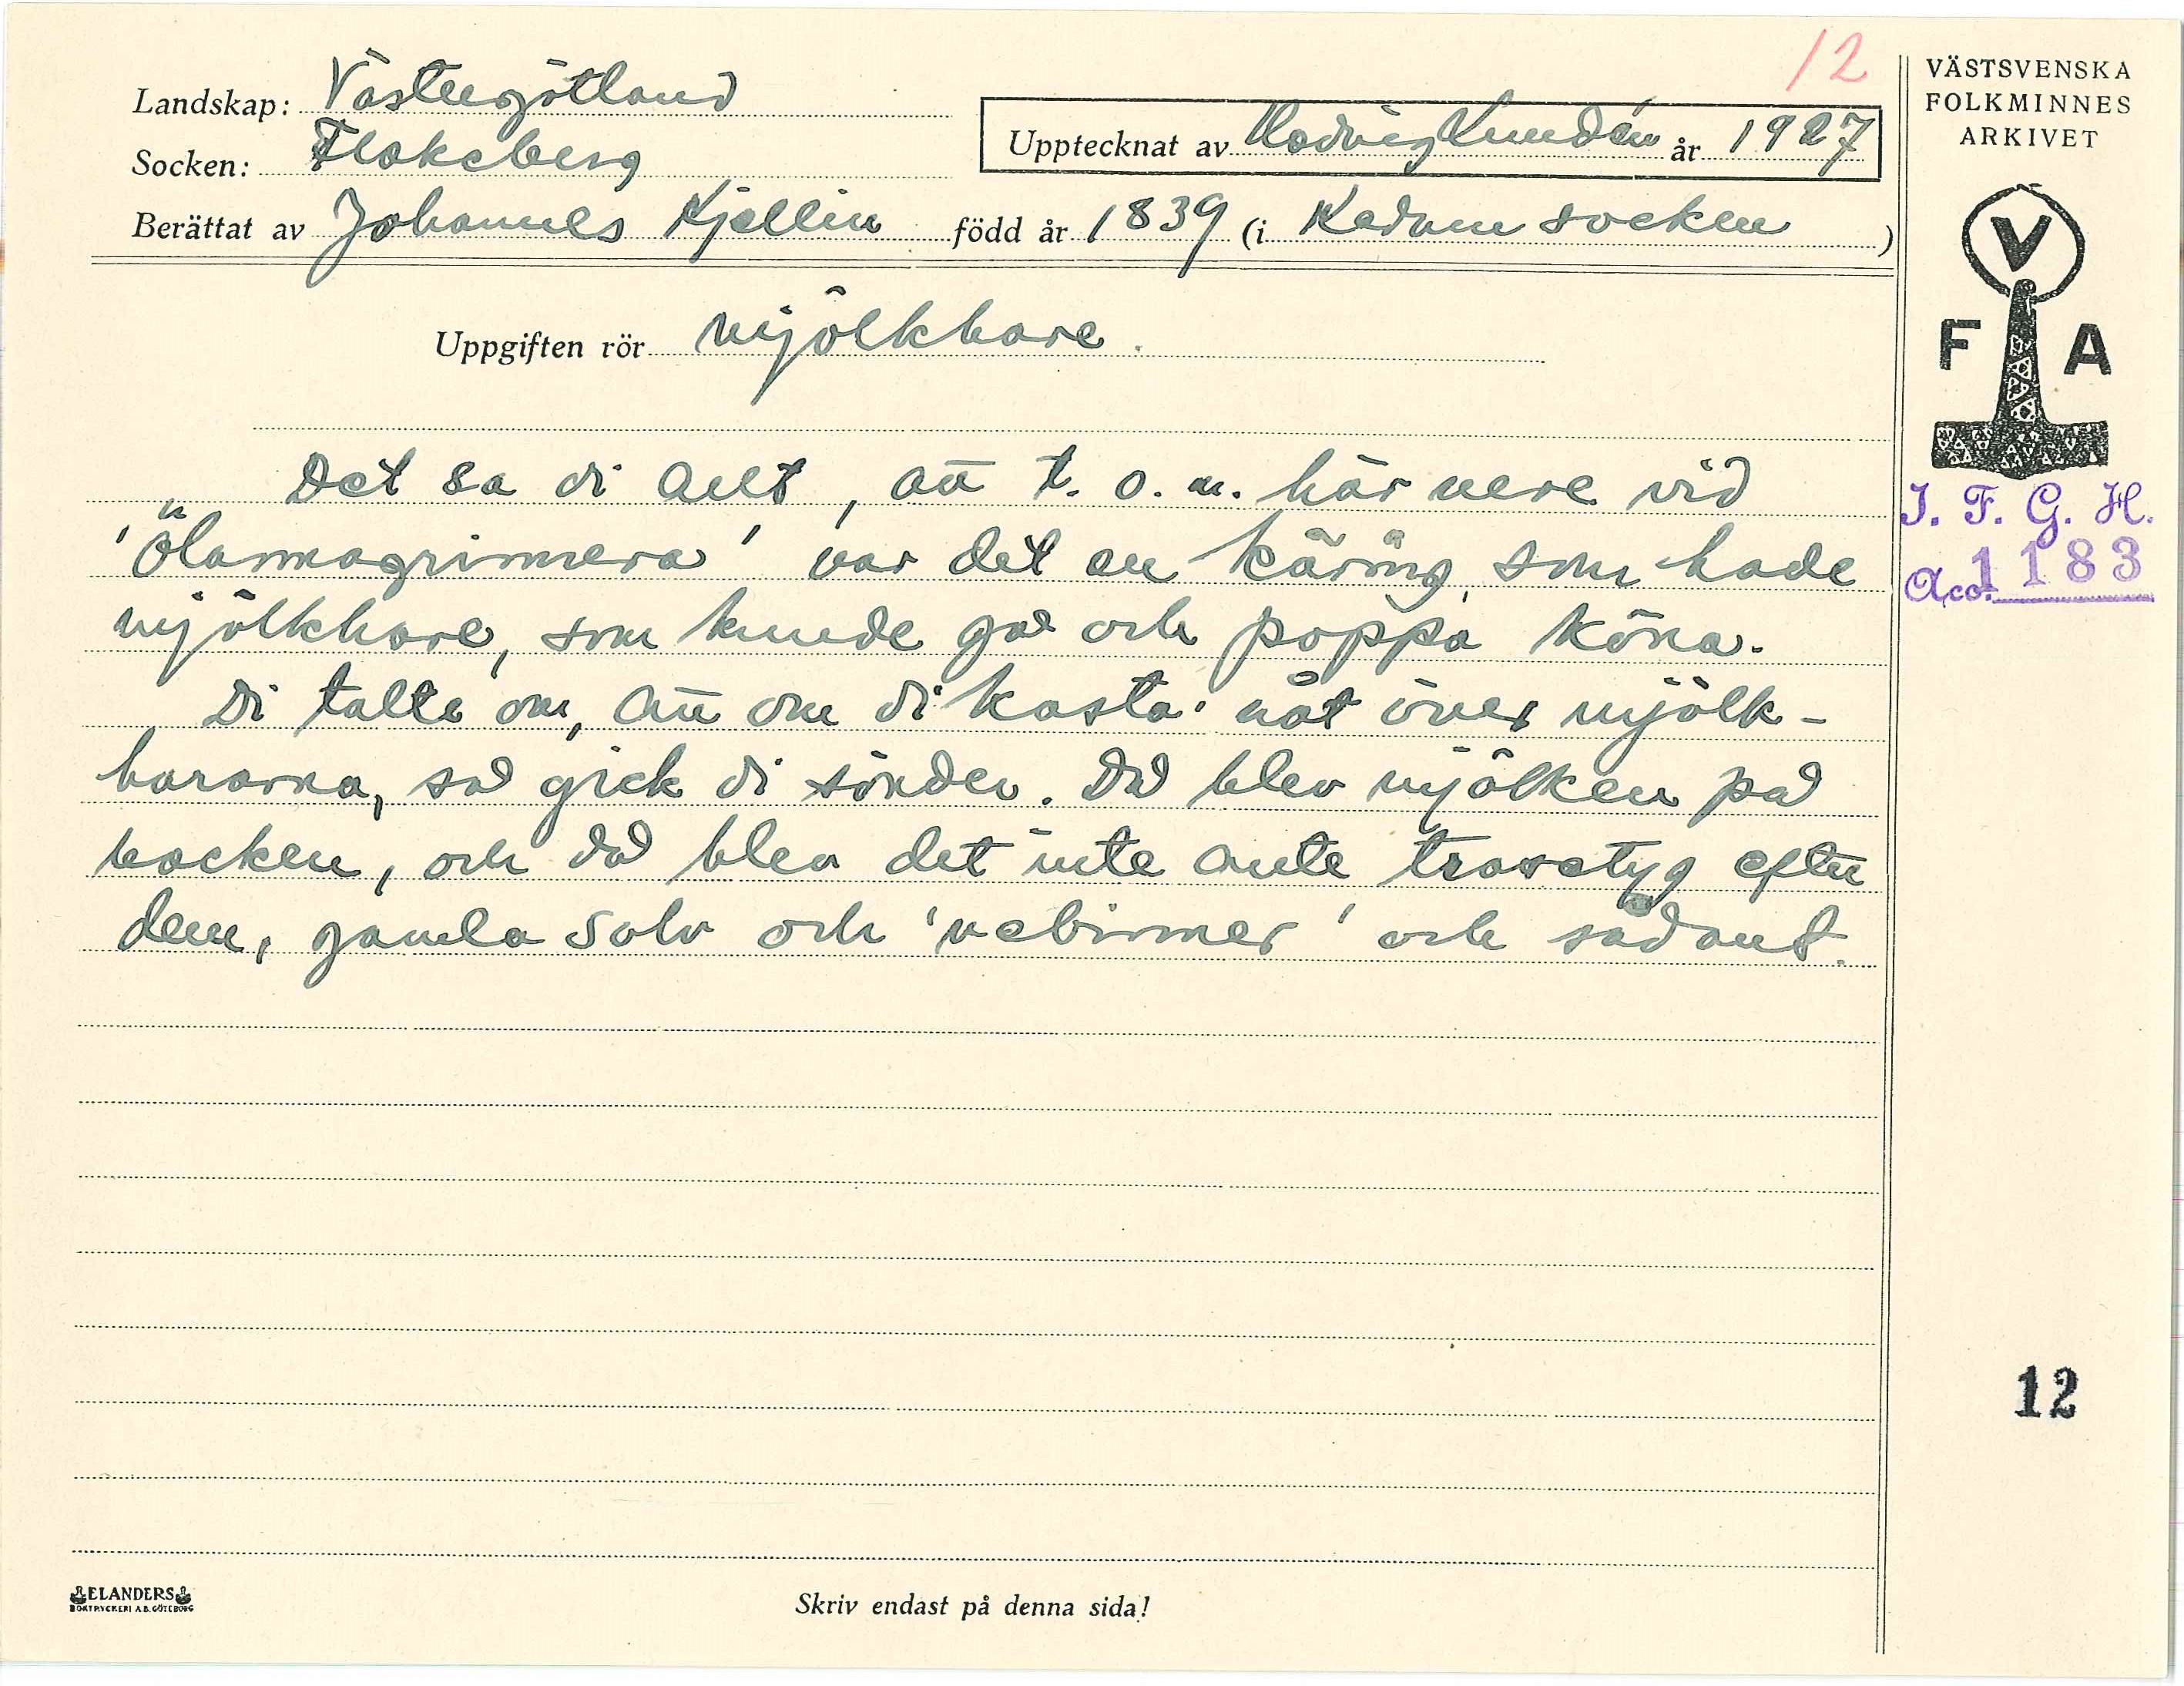 12
Landskap: Västergötland
Socken: Flakeberg
Upptecknat av Hedvig Lundén år 1927
Berättat av Johannes Kjellin född år 1839 (i Kedum socken)
Uppgiften rör mjölkhare.
Det sa di allt, att t. o. m. här nere vid
'Ölannagrinnera' var det en käring, som hade
mjölkhare, som kunde gå och pappa köna.
Di talte om, att om di kasta' nåt över mjölk-
hararna, så gick di sönder. Då blev mjölken på
backen, och då blev det inte ante trasetyg efter
dem, gamla solv och 'vebinner' och sådant.
ELANDERS
BOKTRYCKERI A.B. GÖTEBORG
Skriv endast på denna sida!
VÄSTSVENSKA
FOLKMINNES
ARKIVET
V
F A
I. F. G. H.
Acc. 1183
12